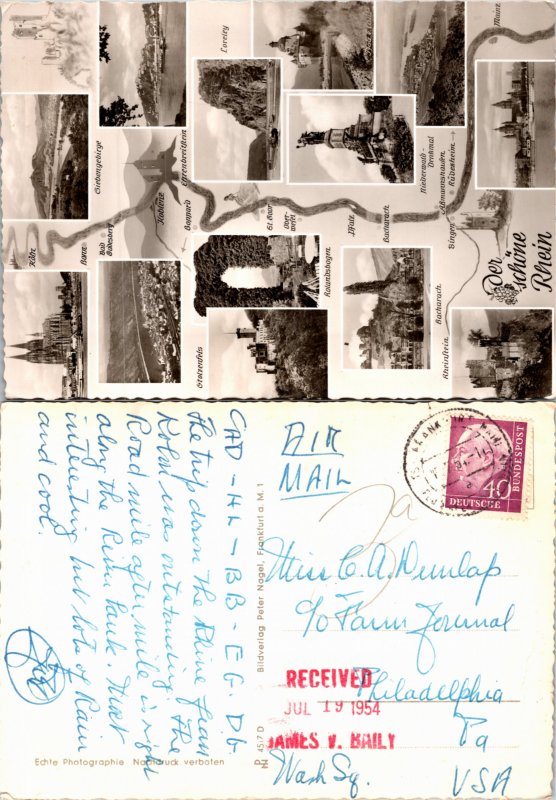 Mainz
Loreley
Siebengebirge
Ehrenbreitstein
Koblenz
Boppard
St. Goar
Ober-
wesel
Pfalz
Bacharach.
Niederwald-
Denkmal
Assmannshausen.
Rüdesheim.
Bingen
Köln
Bonn.
Bad
Godesberg
Stolzenfels
Rolandsbogen.
Bacharach.
Rheinstein.
Der
schöne
Rhein
AIR
MAIL
DEUTSCHE
BUNDESPOST
40
Miss C. A. Dunlap
c/o Farm Journal
Philadelphia
Pa
Wash Sq.
USA
RECEIVED
JUL 19 1954
JAMES V. BAILY
CAD - HL - BB - EG. Db
The trip down the Rhine from
Koln was outstanding. The
Road mile after mile is right
along the River bank. Most
interesting but lots of Rain
and cool.
Bildverlag Peter Nagel, Frankfurt a. M. 1
4517 D
Echte Photographie Nachdruck verboten